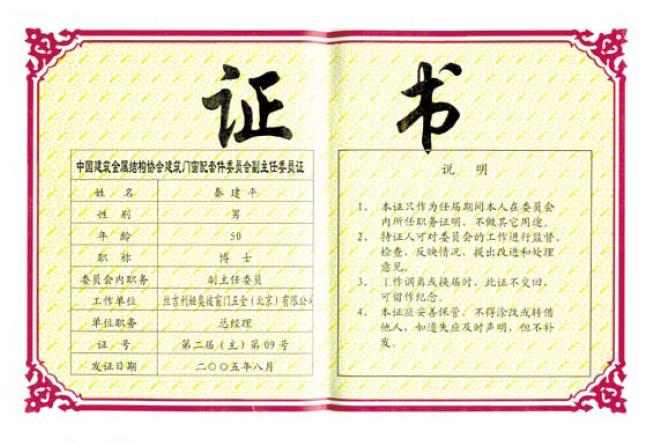 证书
中国建筑金属结构协会建筑门窗配套件委员会副主任委员证
姓 名 秦建平
性 别 男
年 龄 50
职 称 博 士
委员会内职务 副主任委员
工作单位 丝吉利娅奥彼窗门五金(北京)有限公司
单位职务 总经理
证 号 第二届(主)第09号
发证日期 二〇〇五年八月
说 明
1、 本证只作为任届期间本人在委员会
内所任职务证明,不做其它用途。
2、 持证人可对委员会的工作进行监督,
检查,反映情况,提出改进和处理
意见。
3、 工作调离或换届时,此证不交回,
可留作纪念。
4、 本证应妥善保管,不得涂改或转借
他人,如遗失应及时声明,但不补
发。